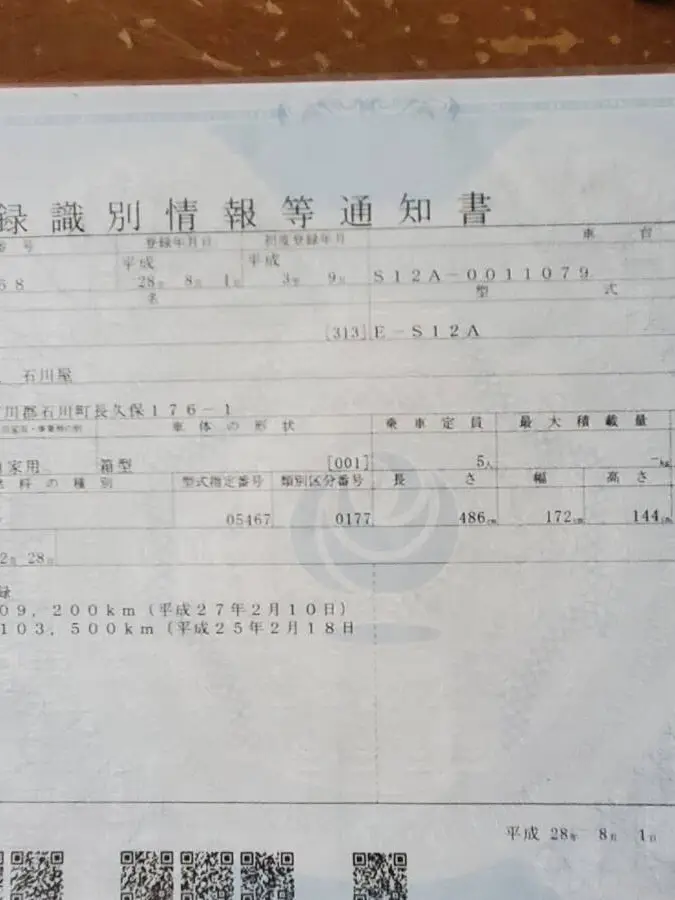 録識別情報等通知書
番号 登録年月日 初度登録年月 車台
68 平成 28年 8月 1日 平成 3年 9月 S12A-0011079
名 型式
[313] E-S12A
石川屋
川郡石川町長久保176-1
車体の形状 乗車定員 最大積載量
自家用 箱型 [001] 5人 －kg
燃料の種別 型式指定番号 類別区分番号 長さ 幅 高さ
05467 0177 486cm 172cm 144cm
2月 28日
録
09,200km(平成27年2月10日)
103,500km(平成25年2月18日
平成 28年 8月 1日